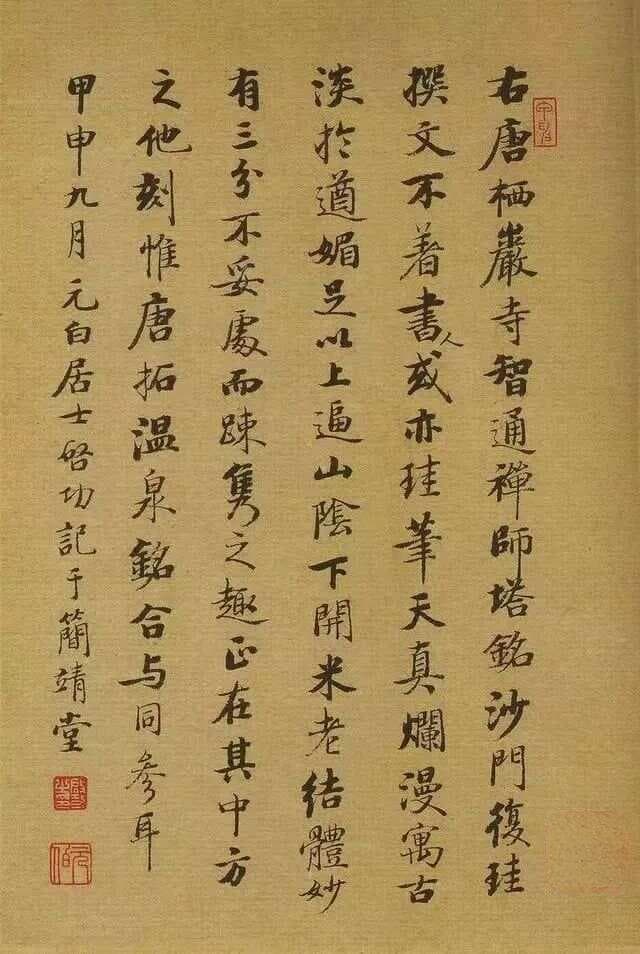 右唐栖巖寺智通禪師塔銘沙門復珪
撰文不著書人或亦珪筆天真爛漫寓古
淡於遒媚足以上逼山陰下開米老結體妙
有三分不妥處而踈雋之趣正在其中方
之他刻惟唐拓溫泉銘合与同參耳
甲申九月元白居士啓功記于簡靖堂
啓功
元伯